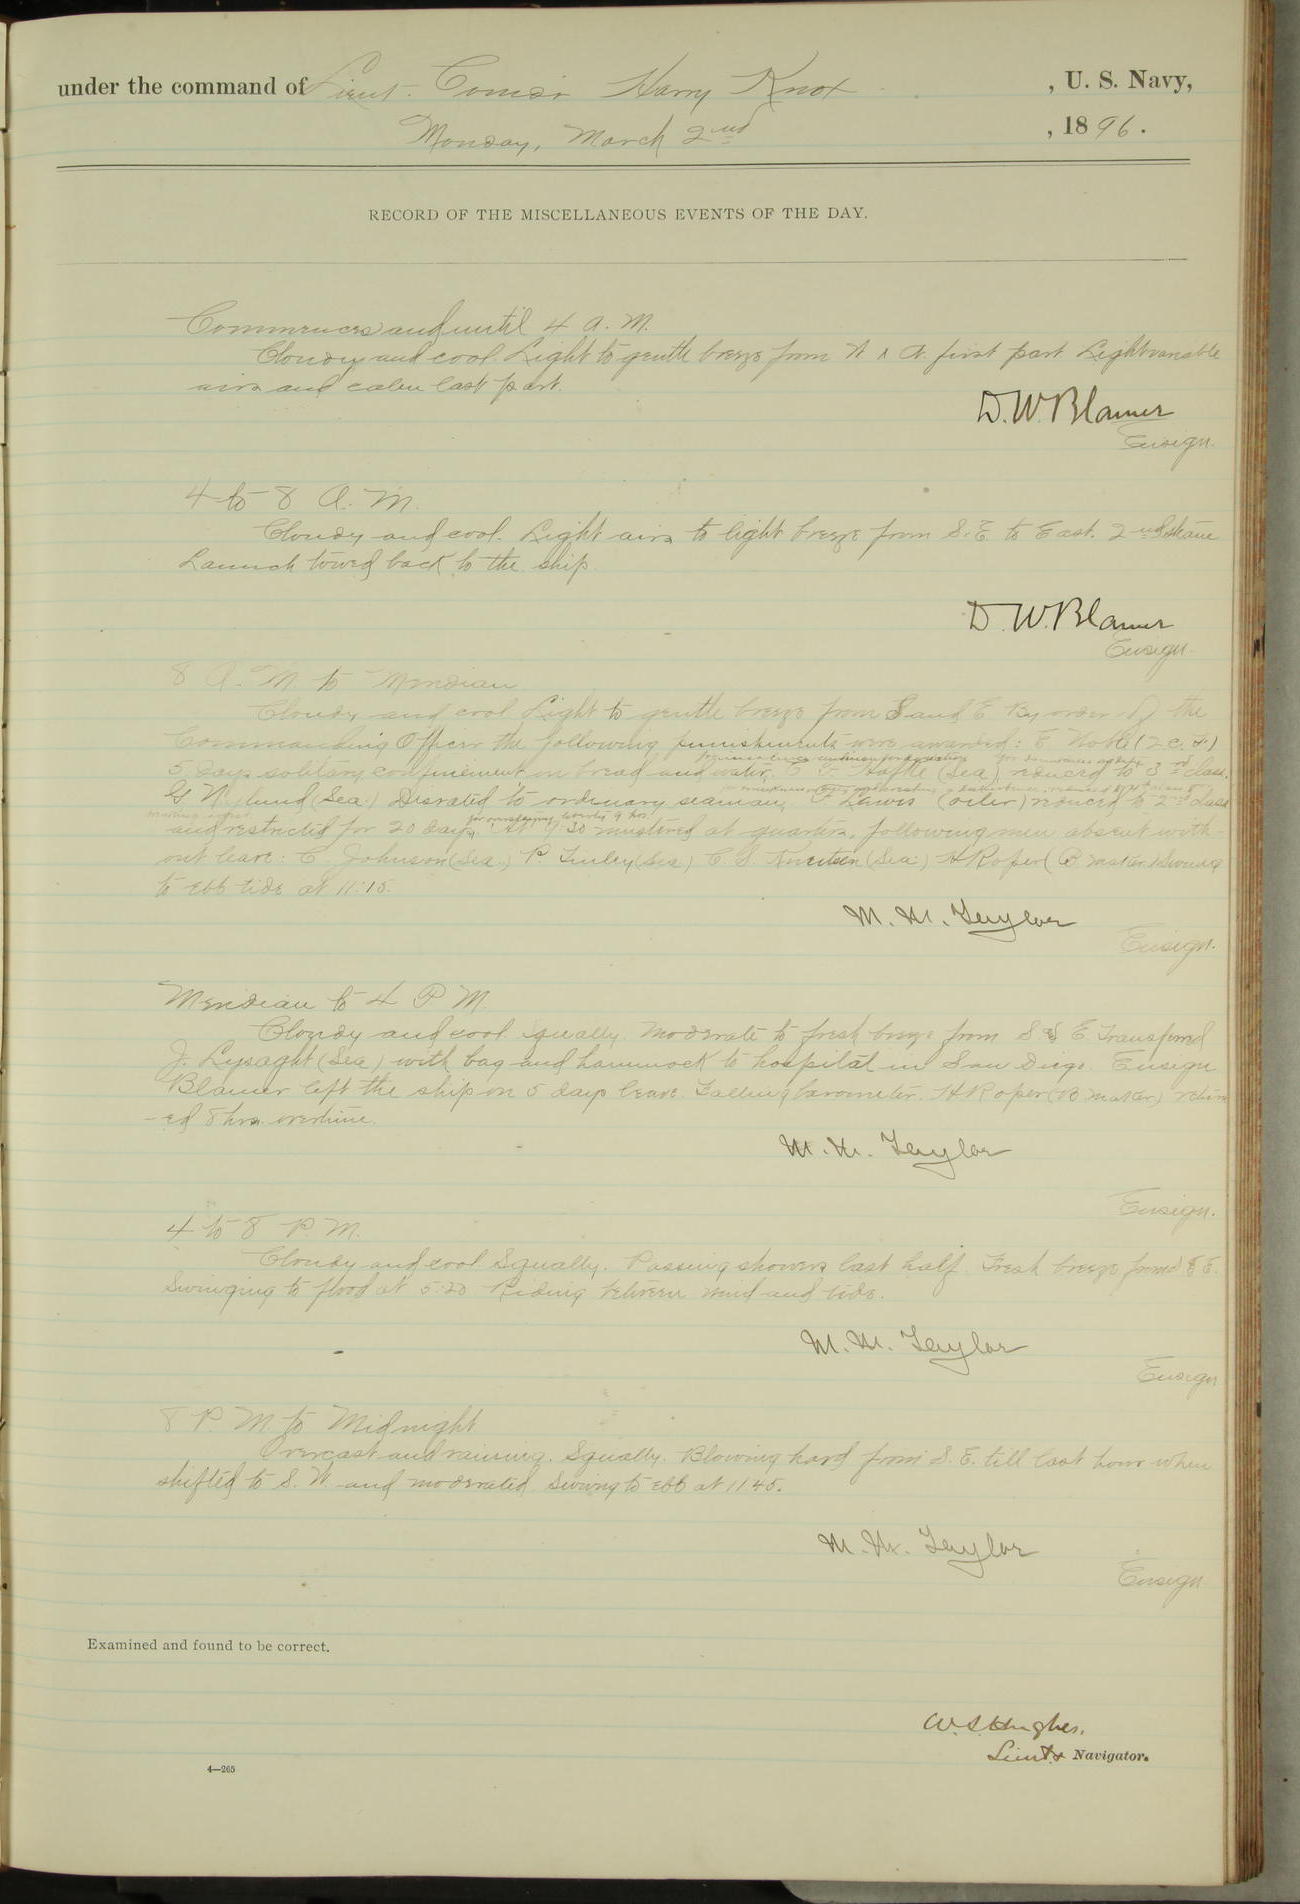 under the command of Lieut. Comdr Harry Knox, U. S. Navy,
Monday, March 2nd, 1896.
RECORD OF THE MISCELLANEOUS EVENTS OF THE DAY.
Commences and until 4 A. M.
Cloudy and cool. Light to gentle breeze from first part Light variable
airs and calm last part.
D. W. Blamer
Ensign.
4 to 8 A. M.
Cloudy and cool. Light airs to light breeze from S. E. to East. 2nd Steam
Launch towed back to the ship.
D. W. Blamer
Ensign.
8 A. M. to Meridian
Cloudy and cool Light to gentle breeze from S and E By order of the
Commanding Officer the following punishments were awarded: E Noble (2 c. F.)
5 days solitary confinement on bread and water, (Sea) reduced to 3rd class.
G Nylund (Sea.) Disrated to ordinary seaman, F Lewis (oiler) reduced to 2nd class
for overstaying liberty 9 hrs.
and restricted for 20 days. At 9:30 mustered at quarters, following men absent with-
out leave: C. Johnson (Sea.) P. Finley (Sea) C. S. (Sea.) H Roper (B. maker) Swung
to ebb tide at 11:15.
M. M. Taylor
Ensign.
Meridian to 4 P M.
Cloudy and cool Squally. Moderate to fresh breeze from S & E Transferred
J. Lysaght (Sea.) with bag and hammock to hospital in San Diego. Ensign
Blamer left the ship on 5 days leave. Falling barometer. H Roper (B. maker) return
-ed 8 hrs. overtime.
M. M. Taylor
Ensign.
4 to 8 P. M.
Cloudy and cool Squally. Passing showers last half. Fresh breeze from S E.
Swinging to flood at 5:20 Riding between wind and tide.
M. M. Taylor
Ensign
8 P. M. to Midnight
Overcast and raining. Squally. Blowing hard from S. E. till last hour when
shifted to S. W. and moderated Swung to ebb at 11 45.
M. M. Taylor
Ensign
Examined and found to be correct.
W. S. Hughes,
Lieut & Navigator.
4—265